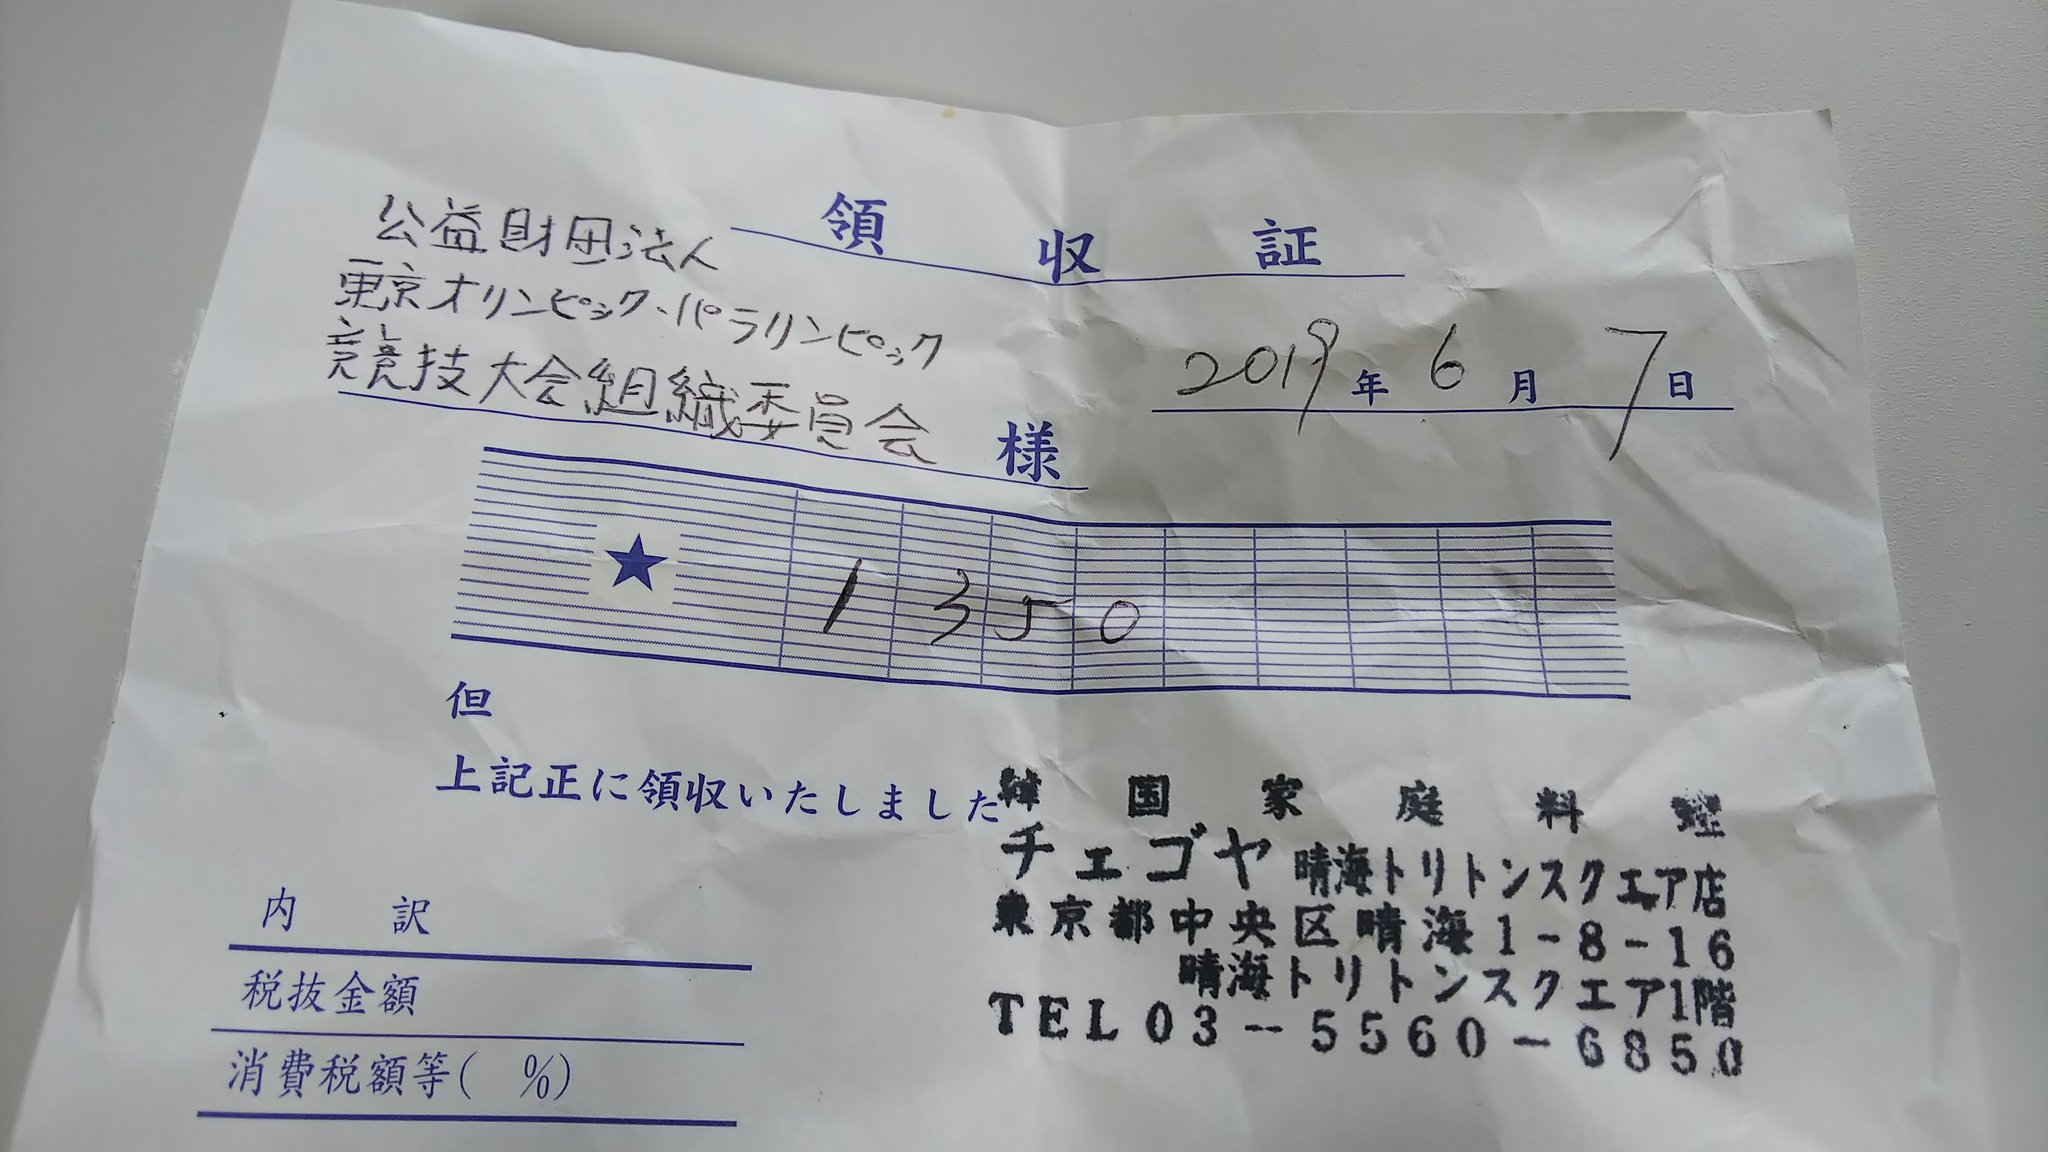 領収証
公益財団法人
東京オリンピック・パラリンピック
競技大会組織委員会 様
2019年 6月 7日
★ 1350
但
上記正に領収いたしました
韓国家庭料理
チェゴヤ 晴海トリトンスクエア店
東京都中央区晴海1-8-16
晴海トリトンスクエア1階
TEL 03-5560-6850
内訳
税抜金額
消費税額等( %)